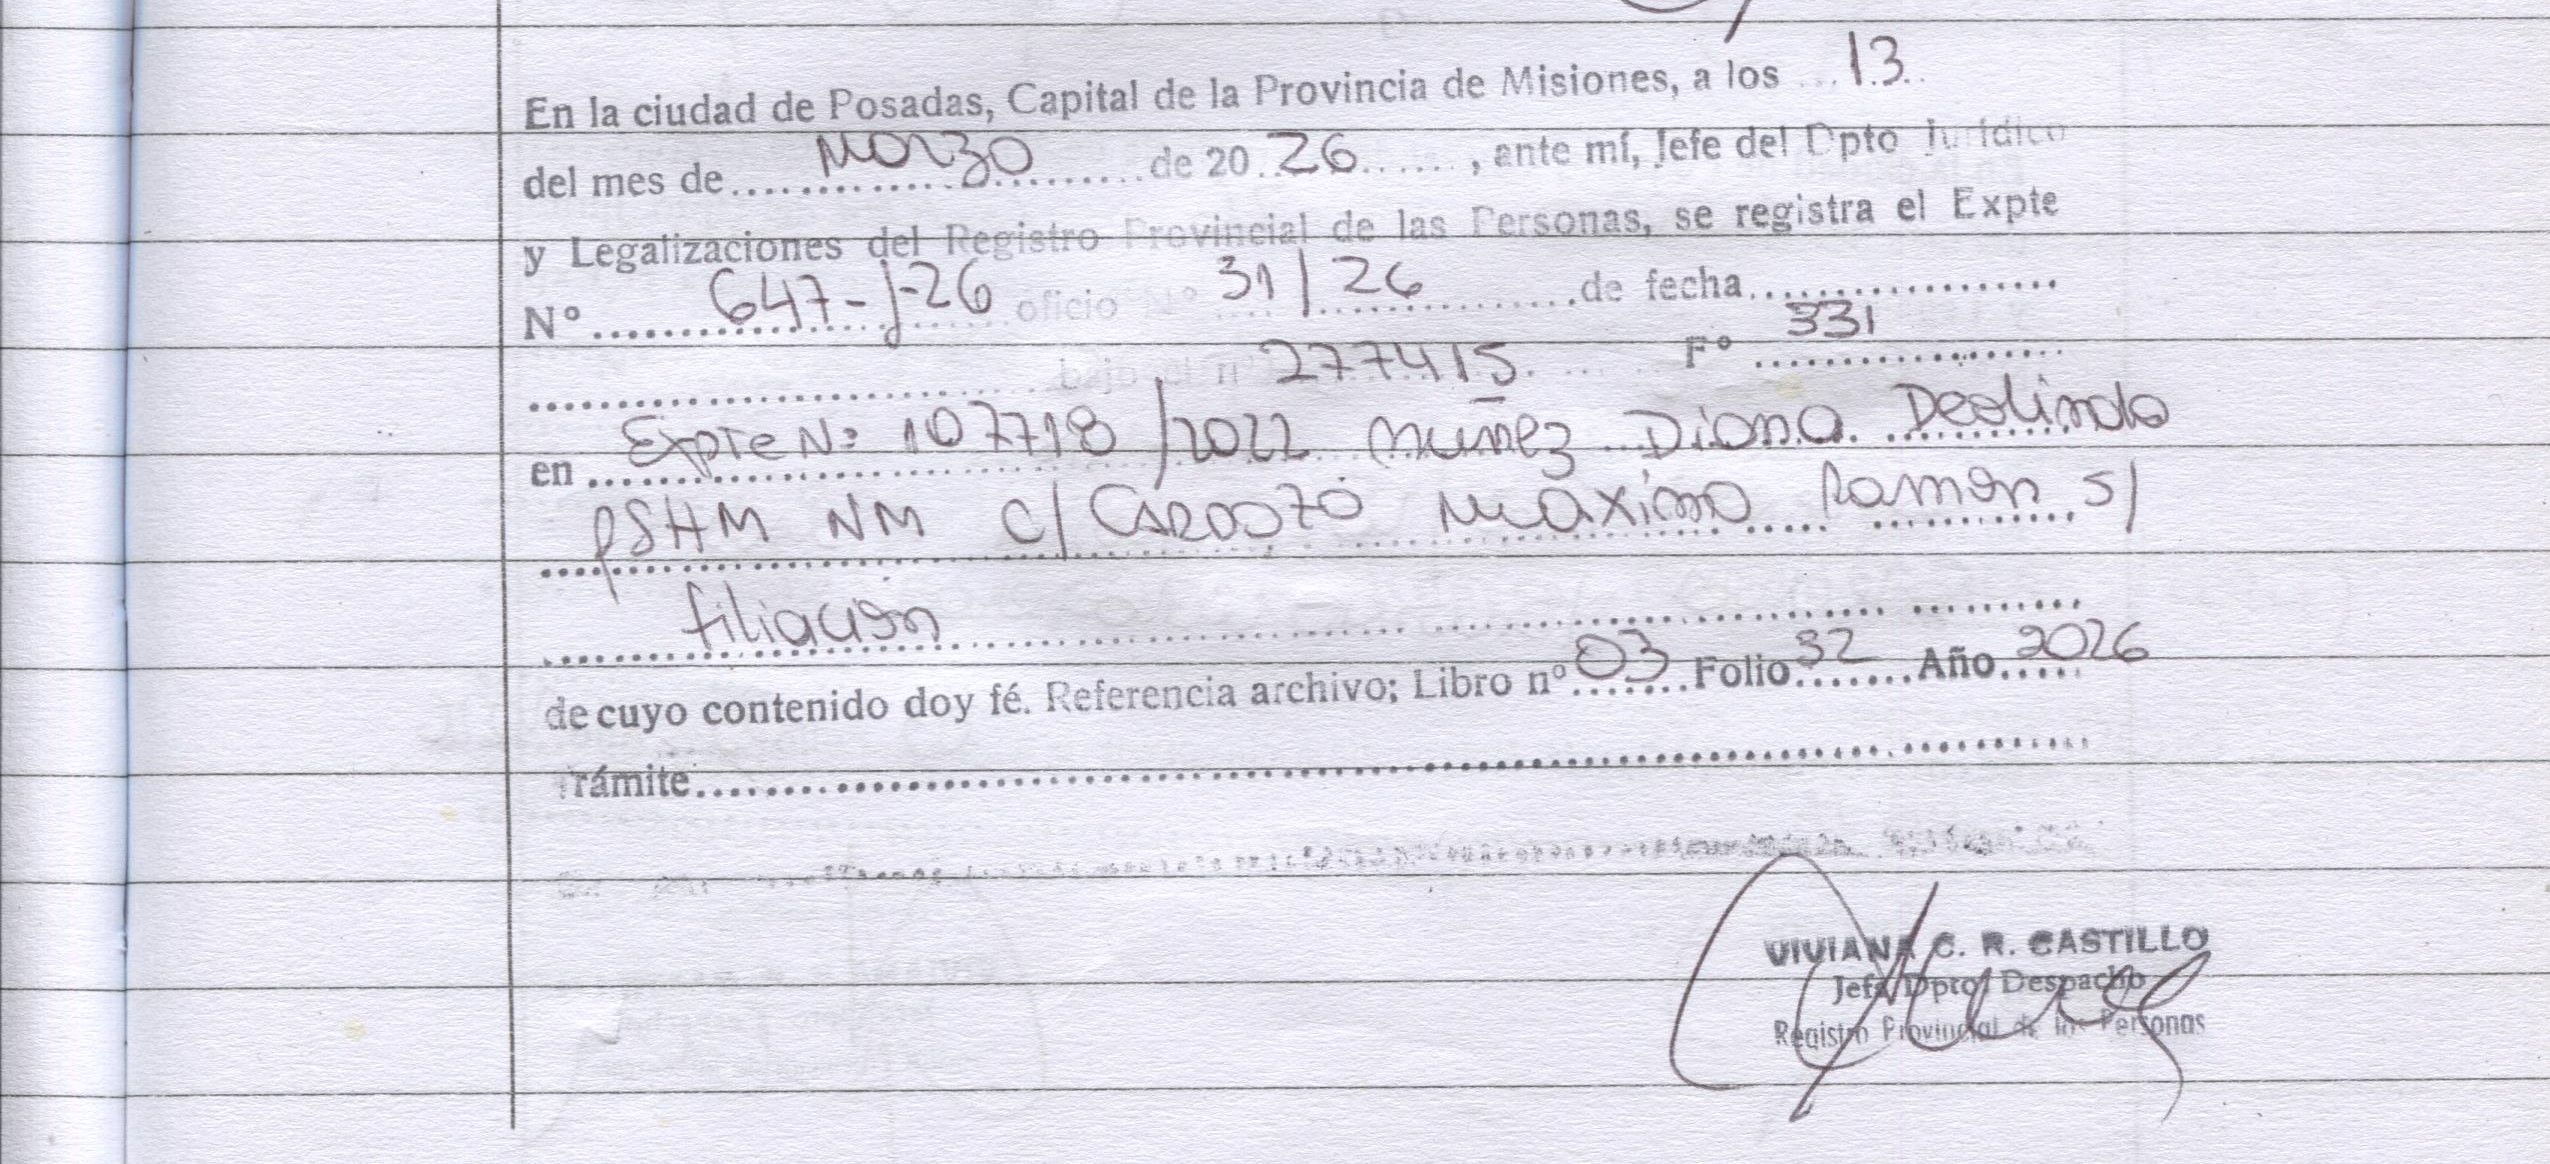 En la ciudad de Posadas, Capital de la Provincia de Misiones, a los ...13..
del mes de.... Marzo ....de 20..26......, ante mí, Jefe del Dpto Jurídico
y Legalizaciones del Registro Provincial de las Personas, se registra el Expte
Nº..... 647-J-26 oficio Nº 31/26 .....de fecha...................
..................... bajo el nº 277415 Fº 331
en Expte Nº 107718/2022 Nuñez Diana Deolinda
PSHM NM C/ CARDOZO Maximo Ramon S/
filiación
de cuyo contenido doy fé. Referencia archivo; Libro nº..03..Folio..32..Año..2026
Trámite....................
VIVIANA C. R. CASTILLO
Jefa Dpto. Despacho
Registro Provincial de las Personas